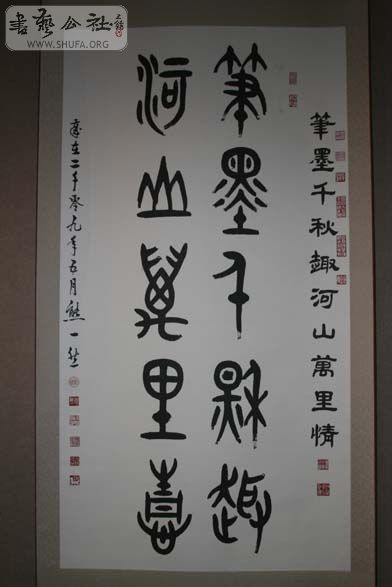 書藝公社
WWW.SHUFA.ORG
筆墨千秋趣河山萬里情
筆墨千秋趣
河山萬里
歲在二千零九年五月熊一然